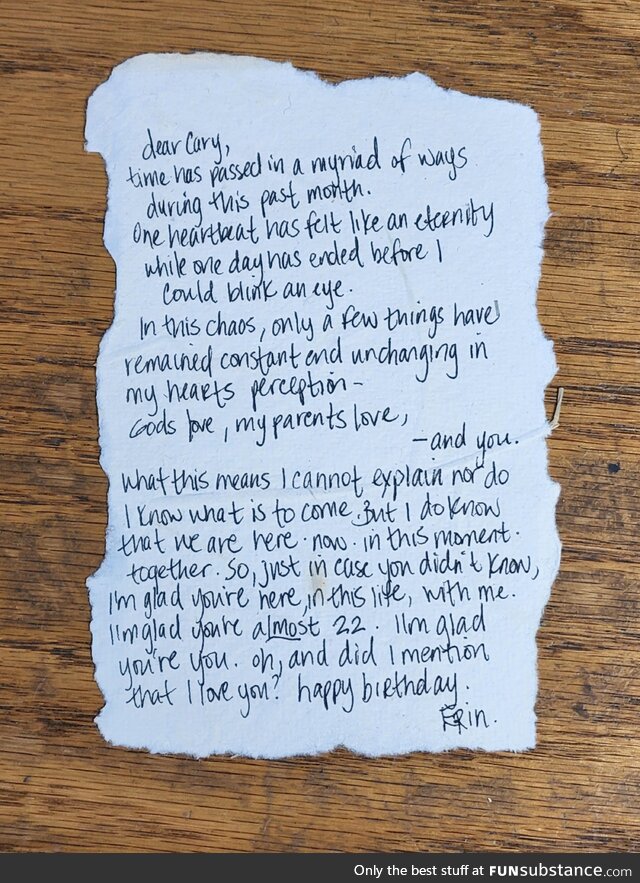 dear Cary,
time has passed in a myriad of ways
during this past month.
One heartbeat has felt like an eternity
while one day has ended before I
could blink an eye.
In this chaos, only a few things have
remained constant and unchanging in
my hearts perception-
Gods love, my parents love,
-and you.
what this means I cannot explain nor do
I know what is to come. But I do know
that we are here. now. in this moment.
together. So, just in case you didn't know,
I'm glad you're here, in this life, with me.
I'm glad you're almost 22. I'm glad
you're you. oh, and did I mention
that I love you? happy birthday.
Erin.
Only the best stuff at FUNsubstance.com